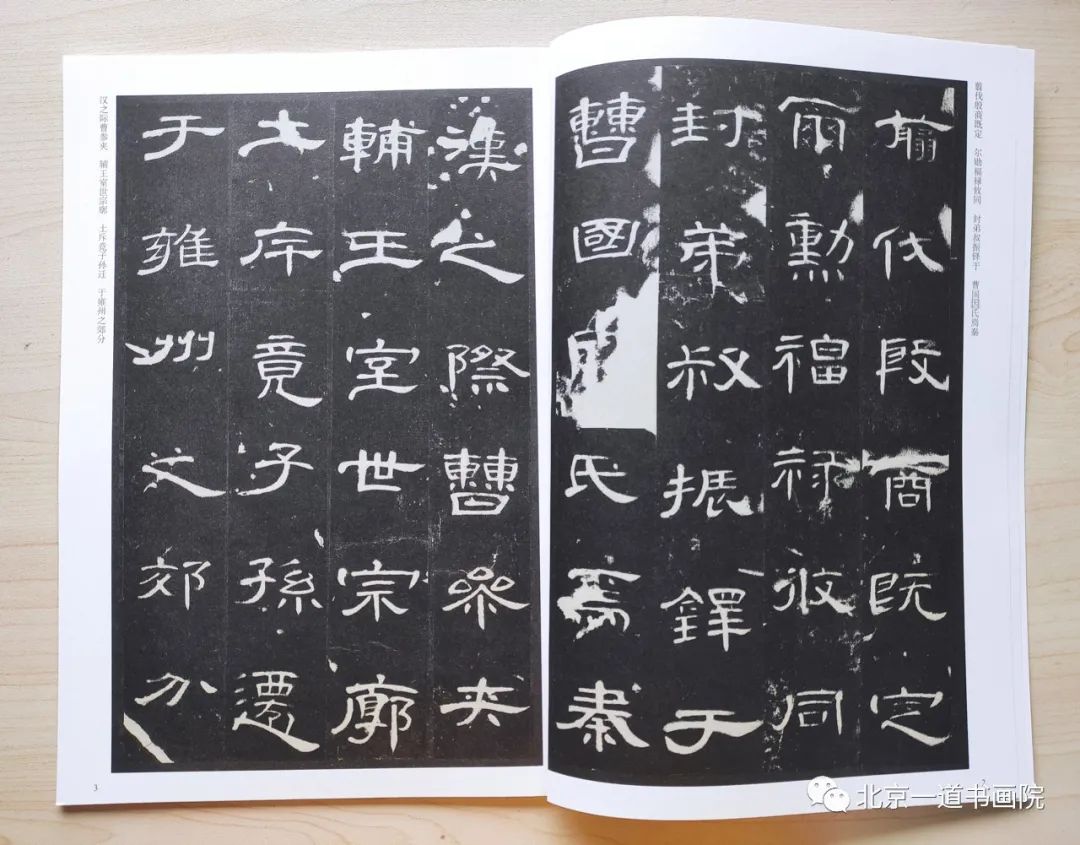 翦伐殷商既定 尔勋福禄攸同 封弟叔振铎于 曹国因氏焉秦
翦伐殷商既定
爾勳福祿攸同
封弟叔振鐸于
曹國因氏焉秦
2
漢之際曹參夾
輔王室世宗廓
土斥竟子孫遷
于雍州之郊分
汉之际曹参夹 辅王室世宗廓 土斥竟子孙迁 于雍州之郊分
3
北京一道书画院